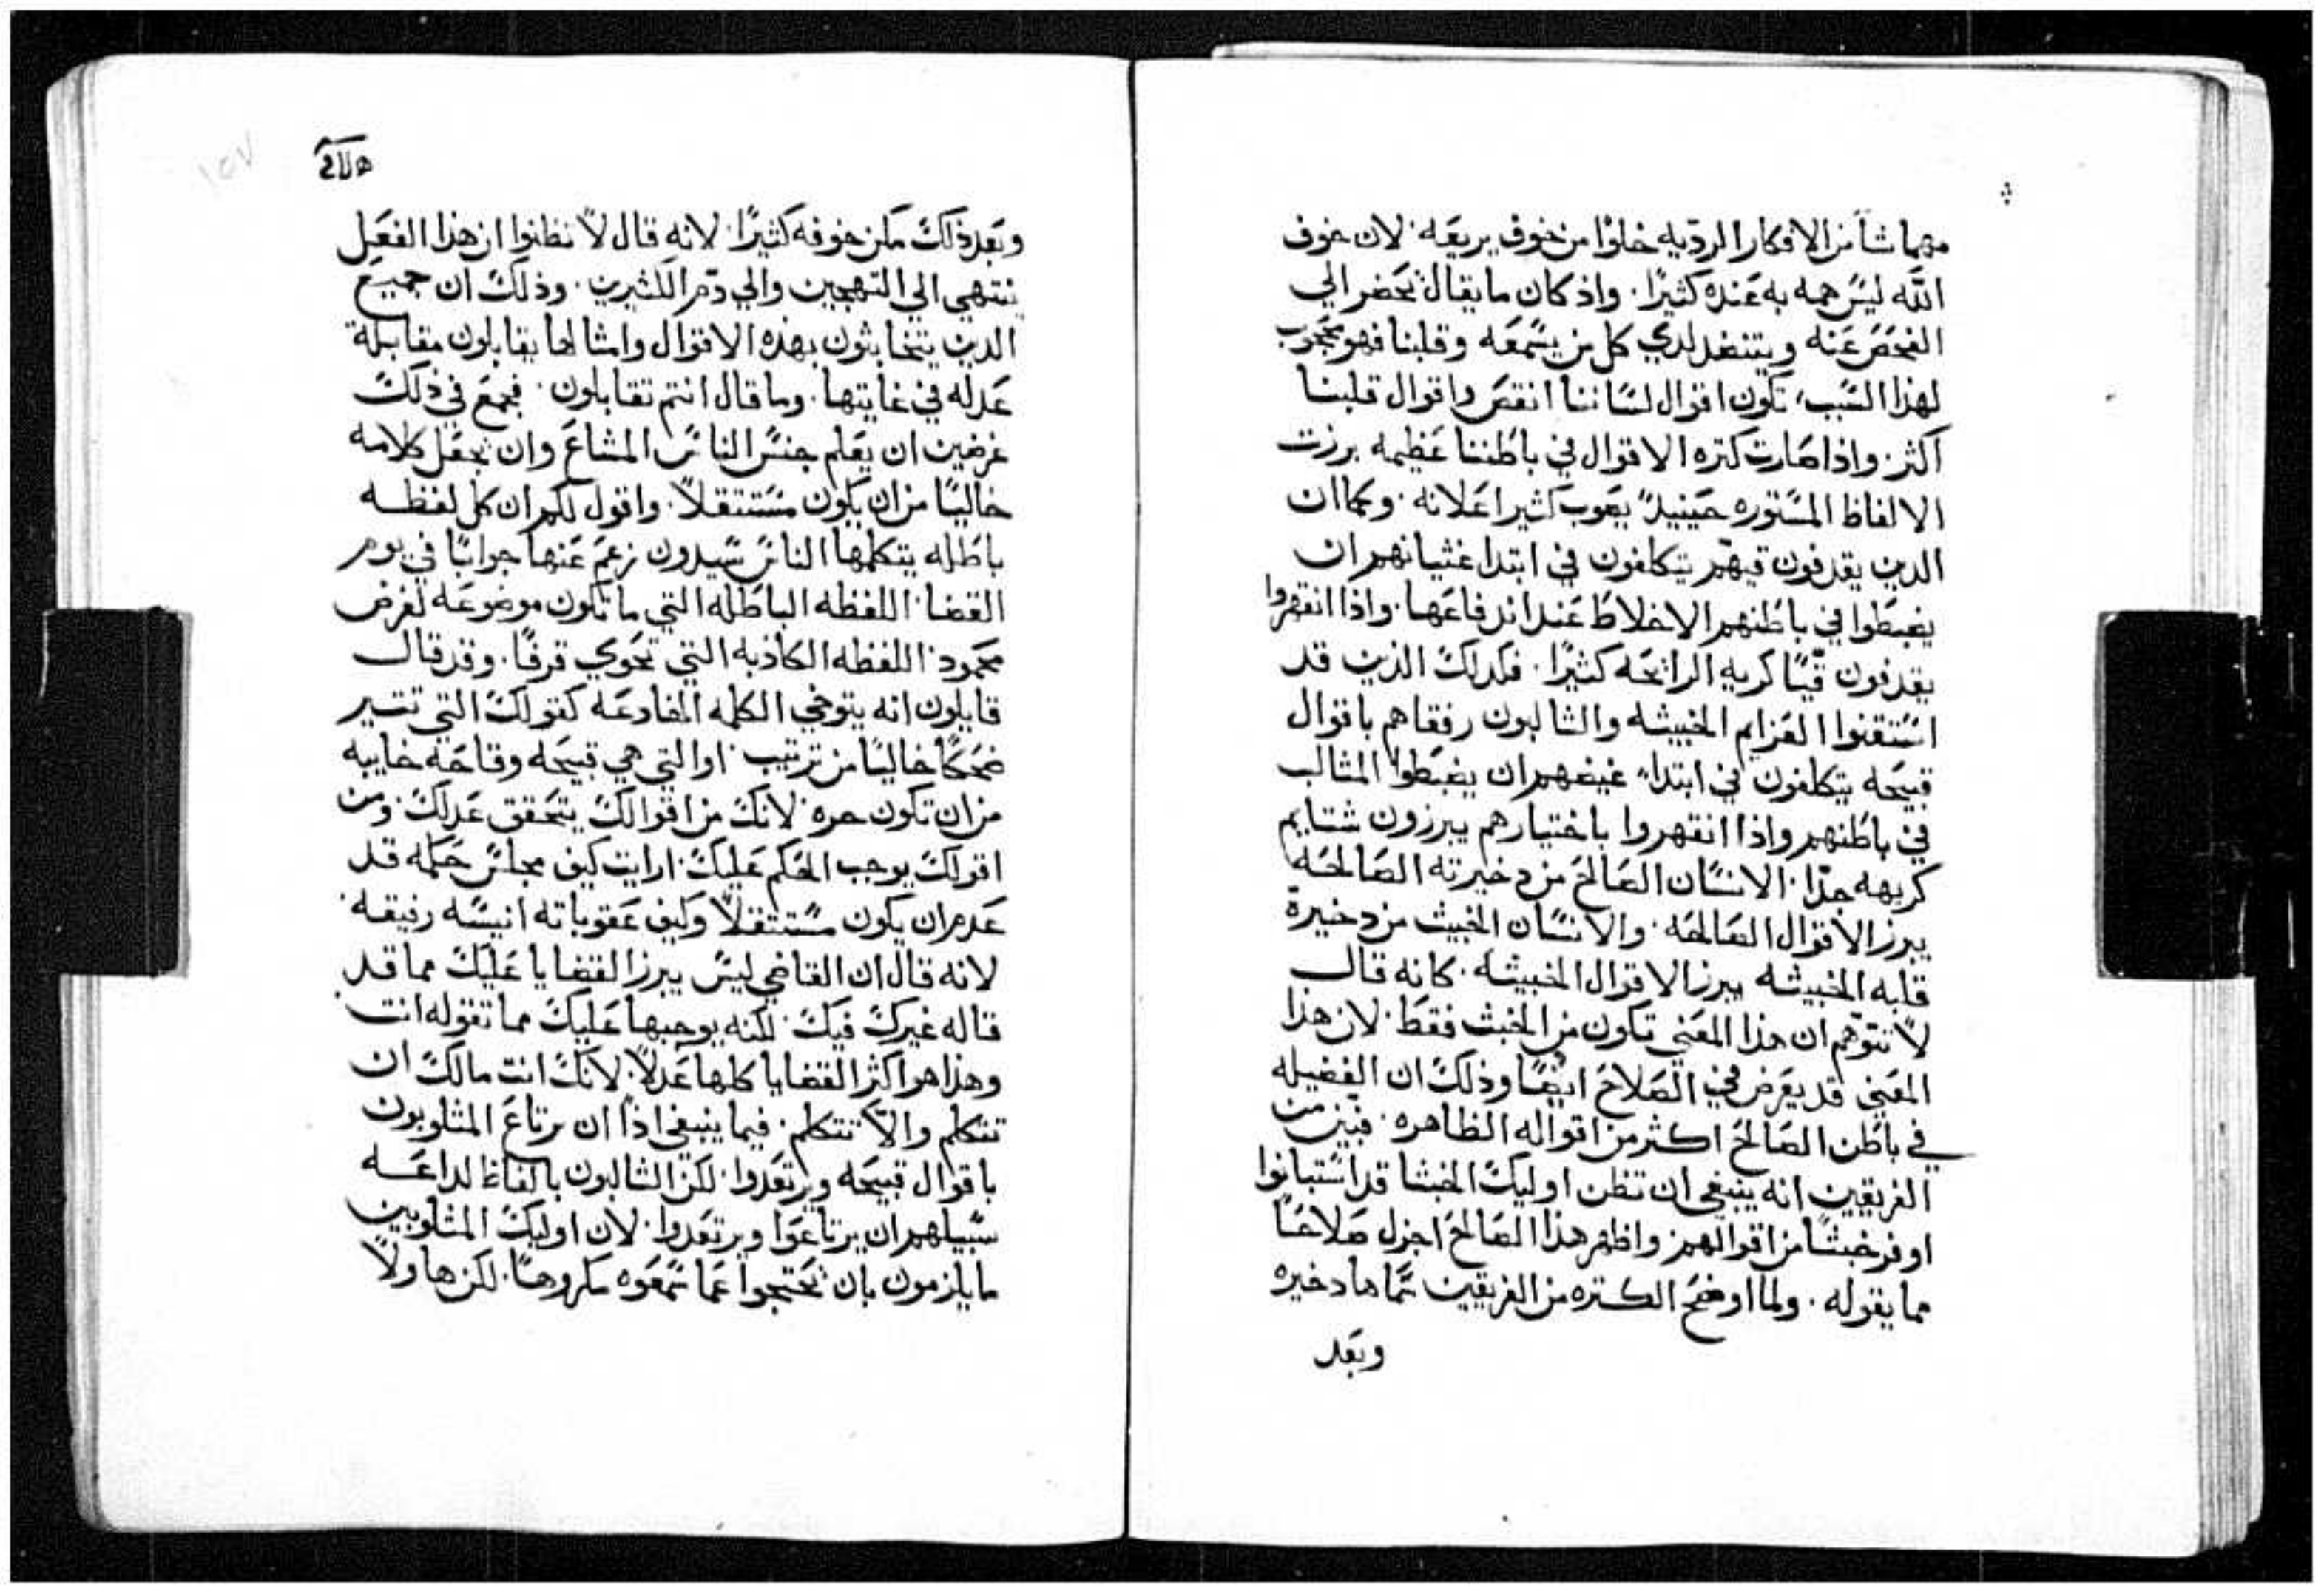 مهما شا من الافكار الرديه خلوًا من خوف يريعه. لان خوف
الله ليس همه به عنده كثيرًا. واذ كان ما يقال يحضر الي
الفحص عنه ويتنضد لدي كل من يسمعه وقلبنا فهو محجوب
لهذا السبب، تكون اقوال لساننا انقص واقوال قلبنا
اكثر. واذا صارت كتره الاقوال في باطننا عظيمه برزت
الالفاظ المستوره حينيدٍ يصوب كثير اعلانه. وكما ان
الدين يقدفون قيهم يتكلفون في ابتدا غثيانهم ان
يضبطوا في باطنهم الاخلاط عند اندفاعها. واذا انقهروا
يقدفون قيًا كريه الرائحه كثيرًا. فكدلك الذين قد
استقنوا العزايم الخبيثه والثالبون رفقاهم باقوال
قبيحه يتكلفون في ابتداء غيضهم ان يضبطوا المثالب
في باطنهم واذا انقهروا باختيارهم يبرزون شتايم
كريهه جدًا. الانسان الصالح من دخيرته الصالحه
يبرز الاقوال الصالحه. والانسان الخبيث من دخيرة
قلبه الخبيثه يبرز الاقوال الخبيثه. كانه قال
لا تتوهم ان هذا المعني تكون من الخبث فقط. لان هذا
المعني قد يعرض في الصلاح ايضًا وذلك ان الفضيله
في باطن الصالح اكثر من اقواله الظاهره. فبيّن من
الفريقين انه ينبغي ان تظن اوليك الخبثا قد استبانوا
اوفر خبثًا من اقوالهم واظهر هذا الصالح اجزل صلاحًا
مما يقوله. ولما اوضح الكتره من الفريقين سماها دخيره
وبعد
هولاي
وبعد ذلك مكن خوفه كثيرًا. لانه قال لا تظنوا ان هذا الفعل
ينتهي الي التهجين والي دم الكثيرين. وذلك ان جميع
الدين يتخابثون بهذه الاقوال وامثالها يقابلون مقابلة
عدله في غايتها. وما قال انتم تقابلون. فجمع في ذلك
غرضين ان يعلم جنس الناس المشاع وان يجعل كلامه
خاليًا من ان يكون مستثقلاً. واقول لكم ان كل لفظه
باطله يتكلمها الناس سيدون زعم عنها جوابًا في يوم
القضا. اللفظه الباطله التي ما تكون موضوعه لغرض
محمود. اللفظه الكاذبه التي تحوي قرفًا. وقد قال
قايلون انه يتوخي الكلمه الفادعه كقولك التي تثير
ضحكًا خاليًا من ترتيب. او التي هي قبيحه وقاحه خايبه
من ان تكون حره. لانك من اقوالك يتحقق عدلك. ومن
اقولك يوجب الحكم عليك. ارايت كيف مجلس حكمه قد
عدم ان يكون مستثقلاً وكيف عقوباته انيسه رفيقه.
لانه قال ان القاضي ليس يبرز القضايا عليك مما قد
قاله غيرك فيك. لكنه يوجبها عليك مما تقوله انت
وهذا هو اكثر القضايا كلها عدلاً. لانك انت مالك ان
تتكلم والّا تتكلم. فيما ينبغي اذًا ان يرتاع المثلوبون
باقوال قبيحه ويرتعدوا. لكن الثالبون بالفاظ لداعه
سبيلهم ان يرتاعوا ويرتعدوا. لان اوليك المثلوبين
ما يلزمون بان يحتجوا عما سمعوه مكروهًا. لكن هاولا